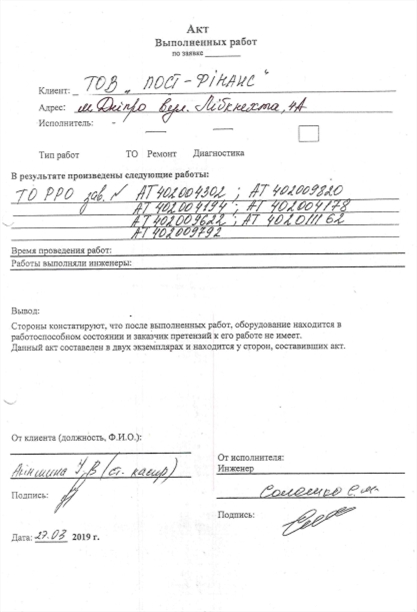 Акт
Выполненных работ
по заявке
Клиент: ТОВ „ПОСТ-ФІНАНС"
Адрес: м. Дніпро вул. Лібкнехта, 4А
Исполнитель:
Тип работ ТО Ремонт Диагностика
В результате произведены следующие работы:
ТО РРО зав. № АТ 402004302 ; АТ 402009820
АТ 402004194 ; АТ 402004178
АТ 402009622 ; АТ 402011162
АТ 402009792
Время проведения работ:
Работы выполняли инженеры:
Вывод:
Стороны констатируют, что после выполненных работ, оборудование находится в
работоспособном состоянии и заказчик претензий к его работе не имеет.
Данный акт составлен в двух экземплярах и находится у сторон, составивших акт.
От клиента (должность, Ф.И.О.):
От исполнителя:
Инженер
(ст. касир)
Подпись:
Подпись:
Дата: 27.03 2019 г.